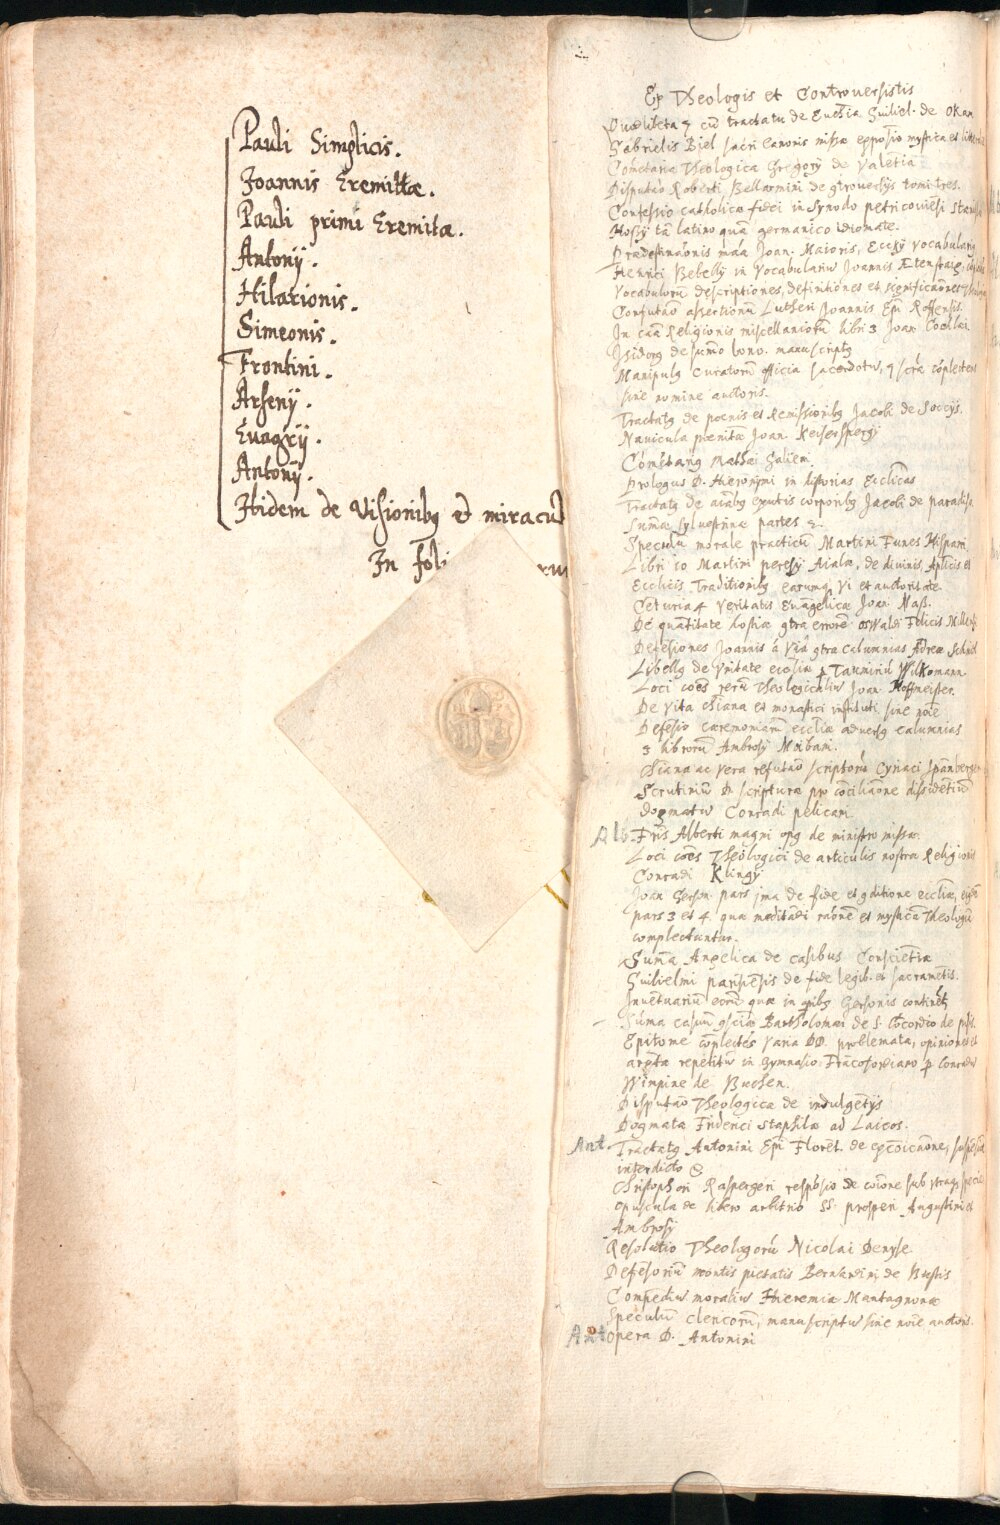 Pauli Simplicis.
Joannis Eremittae.
Pauli primi Eremitae.
Antonij.
Hilarionis.
Simeonis.
Frontini.
Arsenij.
Evagrij.
Antonij.
Ibidem de Visionibꝫ et miracul
In foli
Ex Theologis et Controversistis
Quotlibeta 7 cū tractatu de Euch̄ia Guiliel. de Okan
Gabrielis Biel sacri Canonis missae expositio mystica et
Com̄etaria Theologica Gregorij de Valētia
Disputāo Roberti Bellarmini de 9troversijs tomi tres.
Confessio catholicae fidei in Synodo petricoviēsi
Hosij tā latino quā germanico idiomate.
Praedestinaōnis Joan. Maioris, Eckij vocabularius
Henrici Bebelij in Vocabulariū Joannis
Vocabulorū descriptiones, definitiones et significaōnes
Confutaō assertionū Lutheri Joannis Ep̄i Roffensis.
In cāa Religionis miscellaniorū libri 3 Joan Coclei
Isidorꝫ de sum̄o bono. manuscriptꝫ
Manipulꝫ Curatorū officia sacerdotū,
sine nomine auctoris.
Tractatꝫ de poenis et Remissionibꝫ Jacobi de
Navicula poenitāe Joan Keisersperg
Com̄etariꝫ Mathei Galieni
Prologus D. Hieronymi in historias Eccl̄icas
Tractatꝫ de aīabꝫ exutis corporibꝫ Jacobi de paradiso
Sum̄ae sylvestrinae partes 2.
Speculū morale practicū Martini Funes Hispani
Libri 10 Martini peresij Aialae, de divinis, Apl̄icis et
Eccl̄icis Traditionibꝫ earumqꝫ vi et auctoritate.
Cēturia 4 Veritatis Evāgelicae Joan Nasſ.
De quātitate hostiae 9tra errorē Oswaldi Felicis
Defēsiones Joannis à Viâ 9tra Calumnias Adreae
Libellꝫ de Vnitate eccl̄iae p Wilkomann
Loci cōēs rerū Theologicaliū Joan Hoffmeister.
De vita Ch̄iana et monastici instituti sine noīe
Defēsio caeremoniarū eccl̄iae adversꝫ calumnias
3 librorū Ambrosij Moibani.
Ch̄iana ac vera refutāo scriptorū Cyriaci Spanberge
Scrutiniū D scripturae pro cōciliaōne dissidētiū
dogmatū Conradi pelicani
Alb. Fr̄is Alberti magni opꝫ de ministro missae.
Loci cōēs Theologici de articulis nostrae Religionis
Conradi Klingij
Joan Gerson pars 1ma de fide et 9ditione eccl̄iae,
pars 3 et 4 quae meditādi raōnē et mysticā Theologiā
complectuntur.
Sum̄a Angelica de casibus Conscietiae
Guilielmi parisiēsis de fide legib. et sacramētis.
Inuētuariū eorū quae in opibꝫ Gersonis continēt
Sum̄a casuū 9sciae Bartholomaei de S. Cōcordio de pisis.
Epitome cōplectēs varia DD. problemata, opiniones et
repetitū in Gymnasio Frācofordiano p Conradū
Wimpine de Buchen.
Disputāo Theologica de indulgētijs
Dogmata Friderici Staphilae ad Laicos.
Ant. Tractatꝫ Antonini Ep̄i Florēt. de excōicaōne, suspēsiōe
interdicto &
Christophori Raspergeri respōsio de cōione sub utraqꝫ specie
Opuscula de libero arbitrio SS. prosperi Augustini et
Ambrosij
Resolutio Theologorū Nicolai Denyse
Defēsoriū montis pietatis Bernardini de Bustis
Compēdiū moraliū Hieremiae Montagnonae
Speculū clericorū, manuscriptū sine noīe auctoris.
Ant Opera D. Antonini